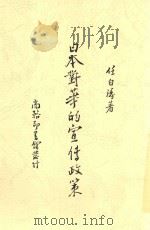 任白濤著
日本對華的宣傳政策
商務印書館發行
www.gpbook.com